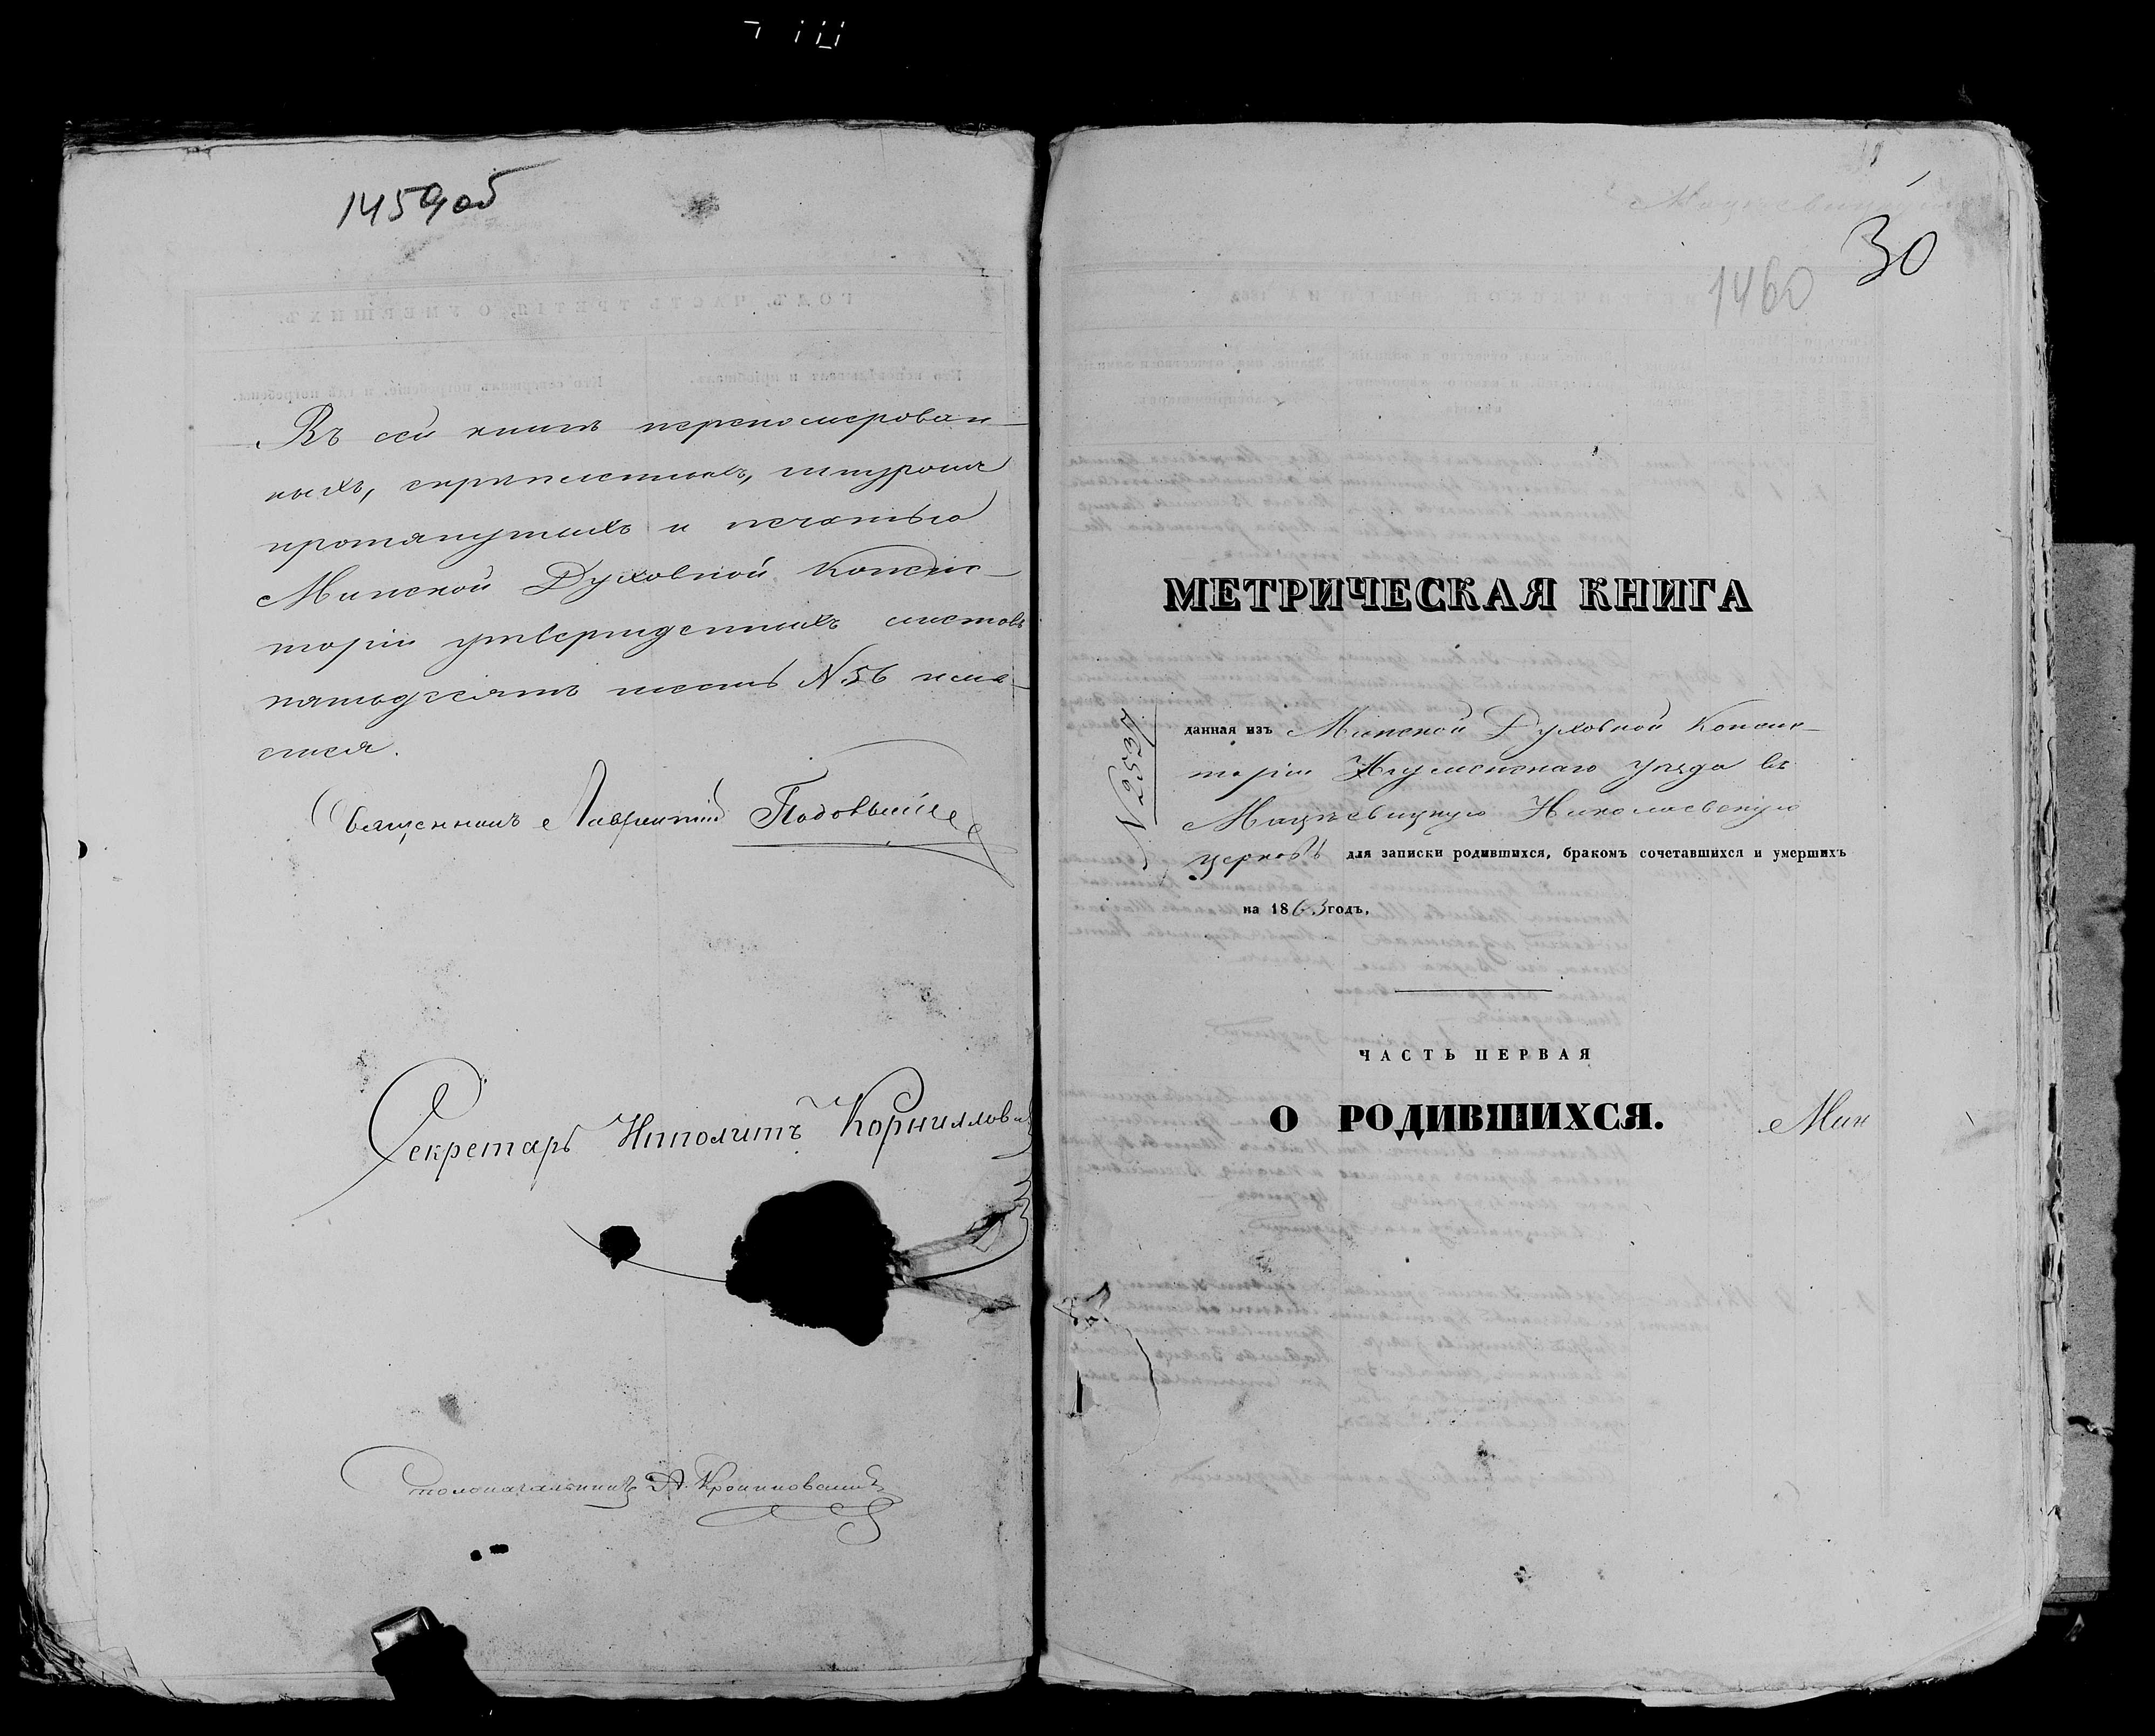 1459об
Въ сей книгѣ перепомерован-
ныхъ, скрѣпленныхъ, шнуромъ
протянутыхъ и печатью
Минской Духовной Консис-
торіи утвержденныхъ листовъ
пятьдесятъ шесть N 56 име-
ется.
Священникъ Лаврентій
Секретарь Ипполитъ Корнилов
Столоначальникъ А.
30
1460
МЕТРИЧЕСКАЯ КНИГА
N 2537
данная изъ Минской Духовной Консис-
торіи Игуменскаго уѣзда въ
Мацѣевицкую Николаевскую
церковь для записки родившихся, бракомъ сочетавшихся и умершихъ
на 1863 годъ.
ЧАСТЬ ПЕРВАЯ
О РОДИВШИХСЯ.
Мин